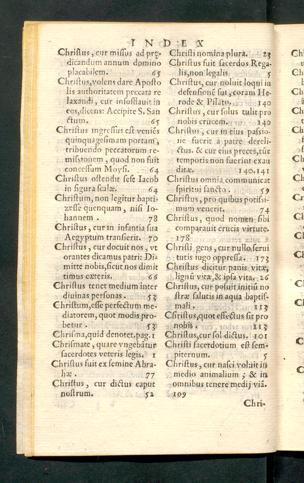 INDEX
Christus, cur missus ad prædicandum
annum domino
placabilem. 65
Christus, volens dare Apostolis
authoritatem peccata relaxandi,
cur insufflauit in
eos, dicens: Accipite S. Sanctum.
65
Christus ingressus est veniēs
quinquagesimam portam,
tribuendo peccatorum remissionem,
quod non fuit
concessum Moysi. 64
Christus ostendit sese Iacob
in figura scalæ. 64
Christum, non legitur baptizesse
quenquam, nisi Iohannem.
78
Christus, cur in infantia sua
Aegyptum transierit. 70
Christus, cur docuit nos, vt
orantes dicamus patri: Dimitte
nobis, sicut nos dimittimus
cæteris. 66
Christus tenet medium inter
diuinas personas. 53
Christum, esse perfectum mediatorem,
quot modis probetur.
53
Chrisma, quid denotet. pag. 1
Chrismate, quare vngebātur
sacerdotes veteris legis. 1
Christus fuit ex semine Abrahæ.
77
Christus, cur dictus caput
nostrum. 52
Christi nomina plura. 23
Christus fuit sacerdos Regalis,
non legalis. 5
Christus, cur noluit loqui in
defensionē sui, coram Herode
& Pilato. 140
Christus, cur solus tulit pro
nobis crucem. 140
Christus, cur in eius passione
fuerit à patre derelictus.
& cur eius preces, eius
temporis non fuerint exauditæ.
140.141
Christus omnia communicat
spiritui sancto. 59
Christus, pro quibus potissimum
venerit. 74
Christus, quod nomen sibi
comparauit crucis virtute.
178
Christi gens, cur nullo seruitutis
iugo oppressa. 173
Christus dicitur panis vitæ,
lignū vitæ, & ipsa vita. 26
Christus, cur posuit initiū nostræ
salutis in aqua baptismati.
113
Christus, quot effectus sit pro
nobis. 213
Christus, cur sol dictus. 101
Christi sacerdotium est sempiternum.
5
Christus, cur nasci voluit in
medio animalium; & in
omnibus tenere mediū viā.
109
Chri-